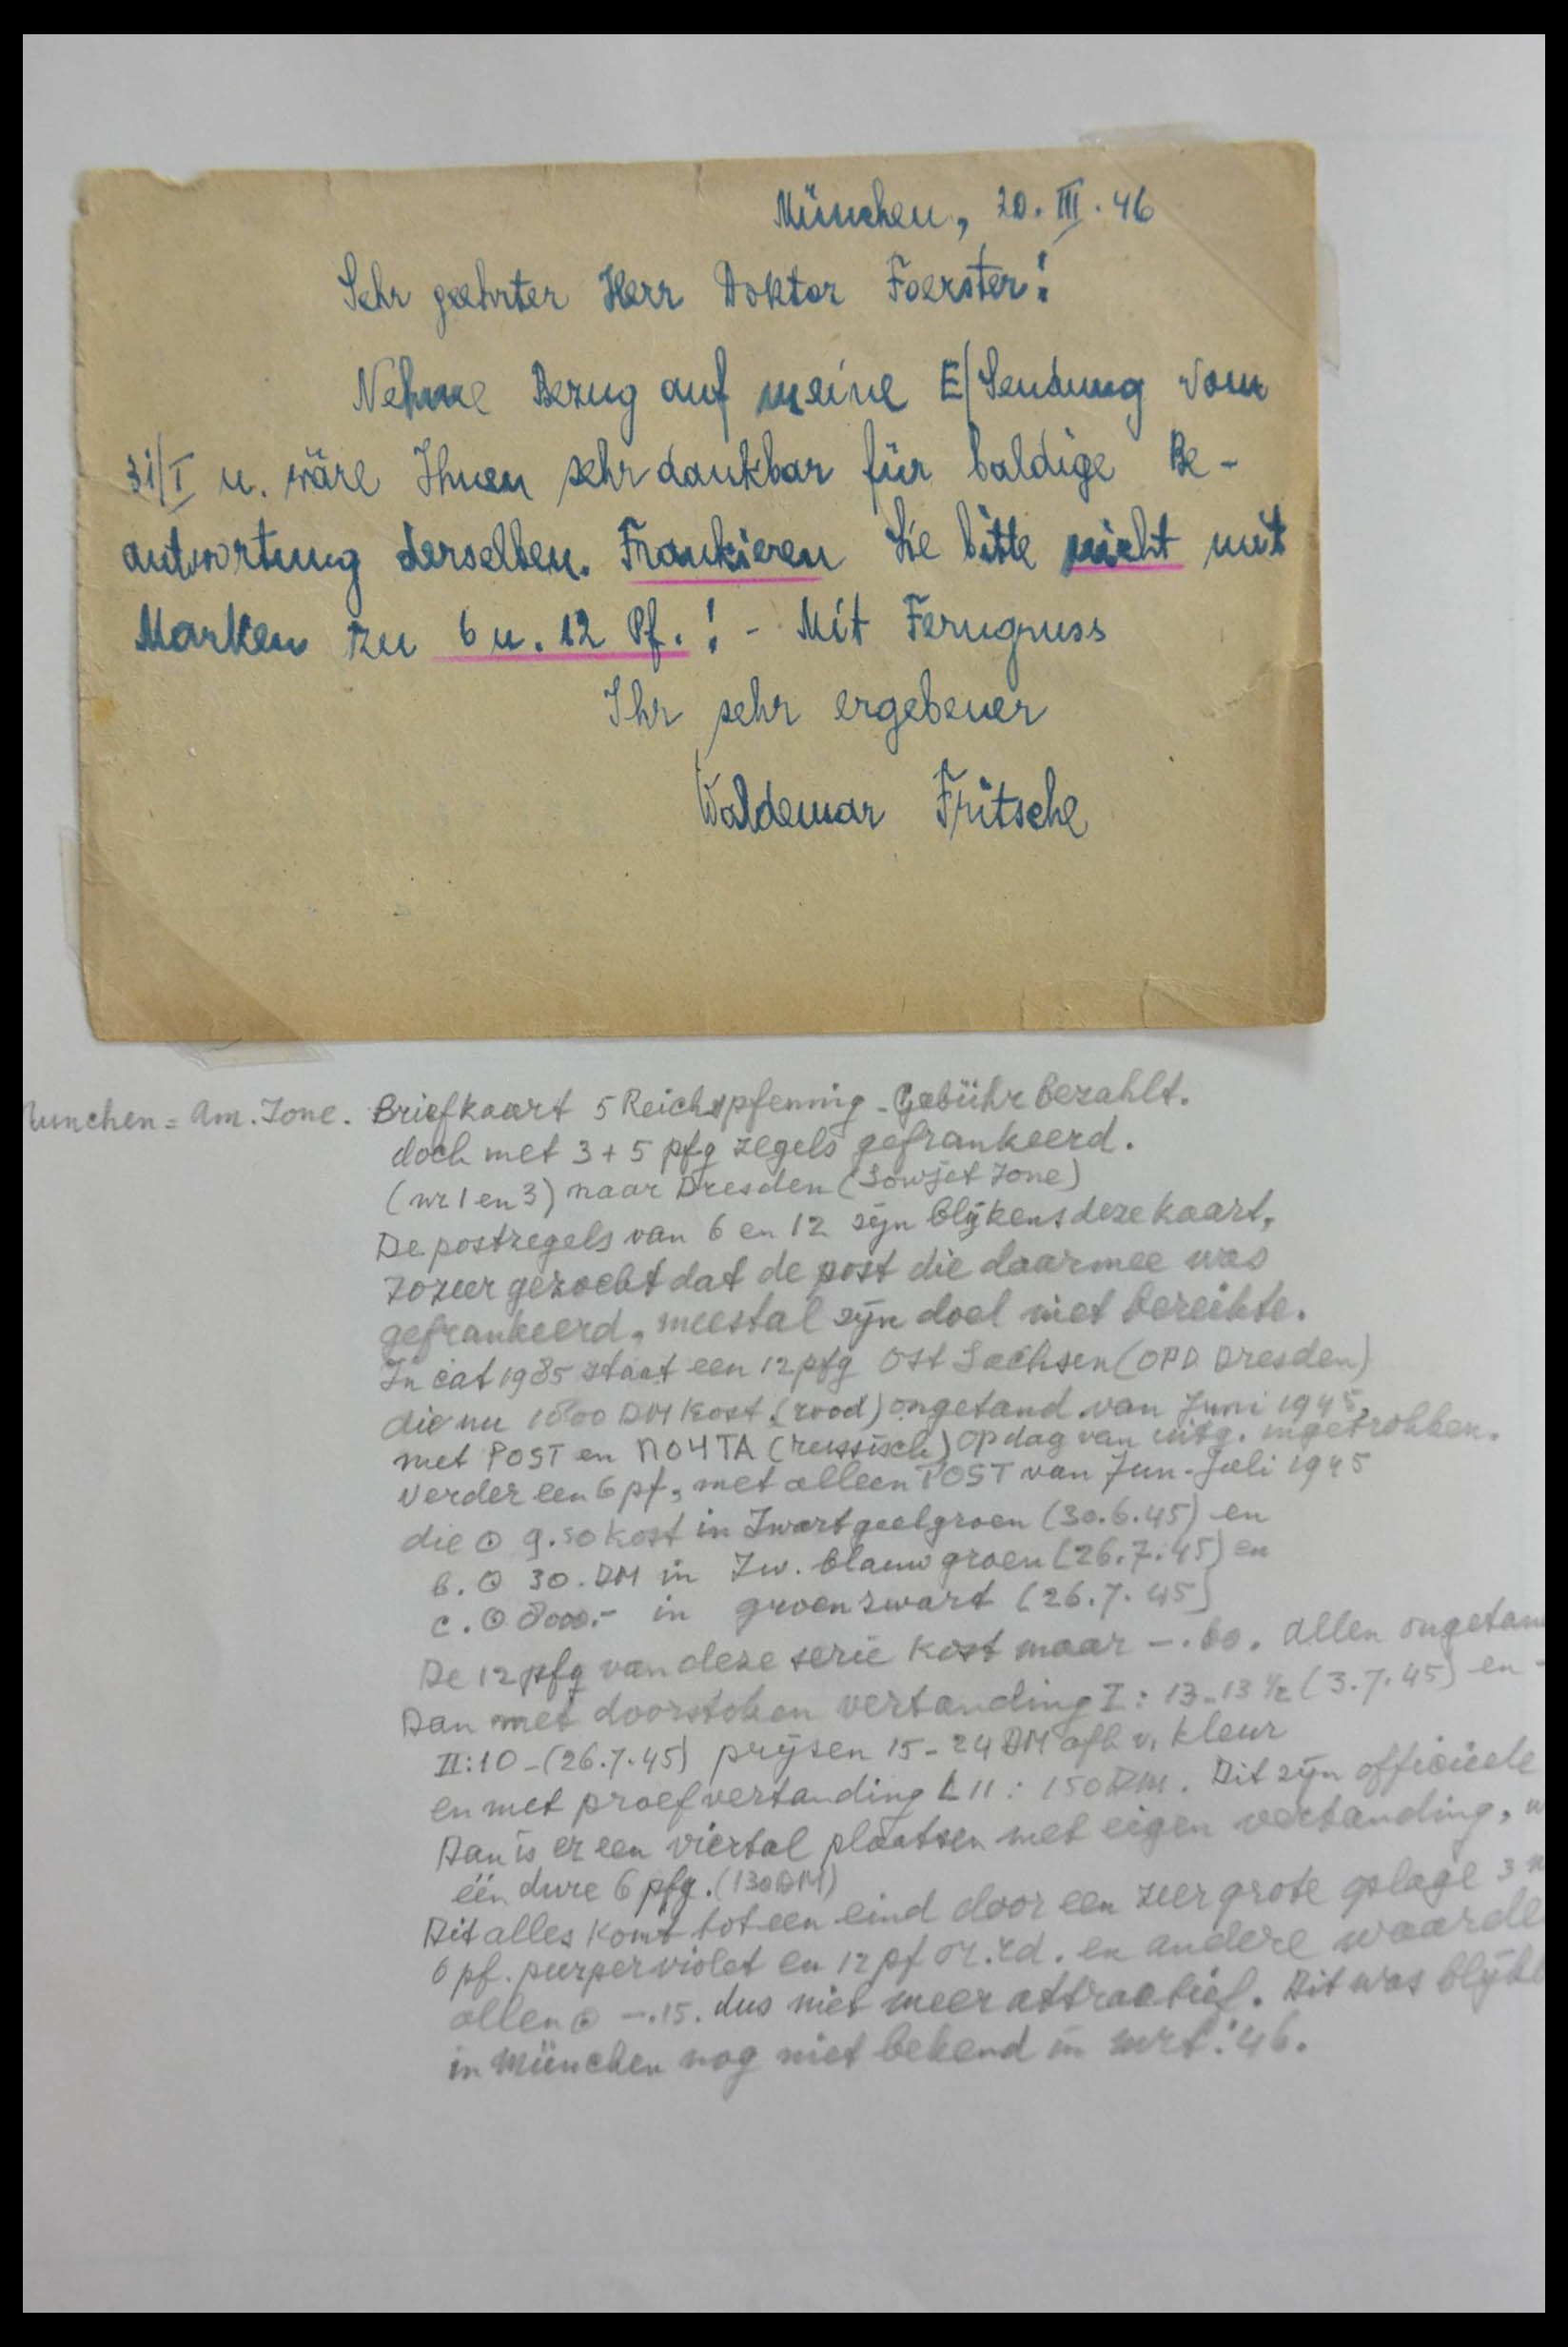 München, 20. III. 46
Sehr geehrter Herr Doktor Foerster!
Nehme Bezug auf meine E/Sendung vom
31/I u. wäre Ihnen sehr dankbar für baldige Be-
antwortung derselben. Frankieren Sie bitte nicht mit
Marken zu 6 u. 12 Pf.! - Mit Ferngruss
Ihr sehr ergebener
Waldemar Fritsche
Munchen = Am. Zone. Briefkaart 5 Reichspfennig - Gebühr bezahlt.
doch met 3 + 5 pfg zegels gefrankeerd.
(nr 1 en 3) naar Dresden (Sowjet Zone)
De postzegels van 6 en 12 zijn blijkens deze kaart,
zozeer gezocht dat de post die daarmee was
gefrankeerd, meestal zijn doel niet bereikte.
In cat 1985 staat een 12 pfg Ost Sachsen (OPD Dresden)
die nu 1800 DM kost. (rood) ongetand van Juni 1945,
met POST en ПОЧТА (russisch) op dag van uitg. ingetrokken.
Verder een 6 pf, met alleen POST van Jun-Juli 1945
die ⊙ 9.50 kost in Zwartgeelgroen (30.6.45) en
b. ⊙ 30. DM in Zw. blauwgroen (26.7.45) en
c. ⊙ 8000.- in groenzwart (26.7.45)
De 12 pfg van deze serie kost maar -.60. allen ongetan
Dan met doorstoken vertanding I: 13-13 1/2 (3.7.45) en -
II: 10 - (26.7.45) prijsen 15-24 DM afh v. kleur
en met proefvertanding L 11: 150 DM. Dit zijn officieele
Dan is er een viertal plaatsen met eigen vertanding,
één dure 6 pfg. (130 DM)
Dit alles komt tot een eind door een zeer grote oplage 3
6 pf. purperviolet en 12 pf or.rd. en andere waarde
allen ⊙ -.15. dus niet meer attractief. Dit was blijk
in München nog niet bekend in mrt. '46.